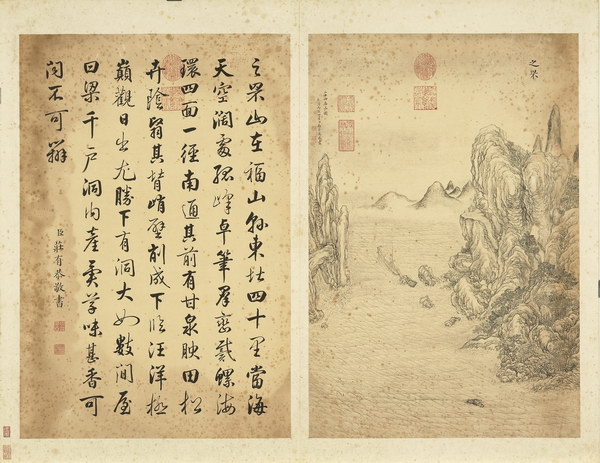 之罘
之罘山在福山縣東北四十里當海
天空闊處孤峰卓筆羣巒螺海
環四面一徑南通其前有甘泉腴田松
卉陰翳其背峭壁削成下臨汪洋極
巔觀日出尤勝下有洞大如數間屋
曰梁千戶洞內產味甚香可
不可
臣莊有恭敬書